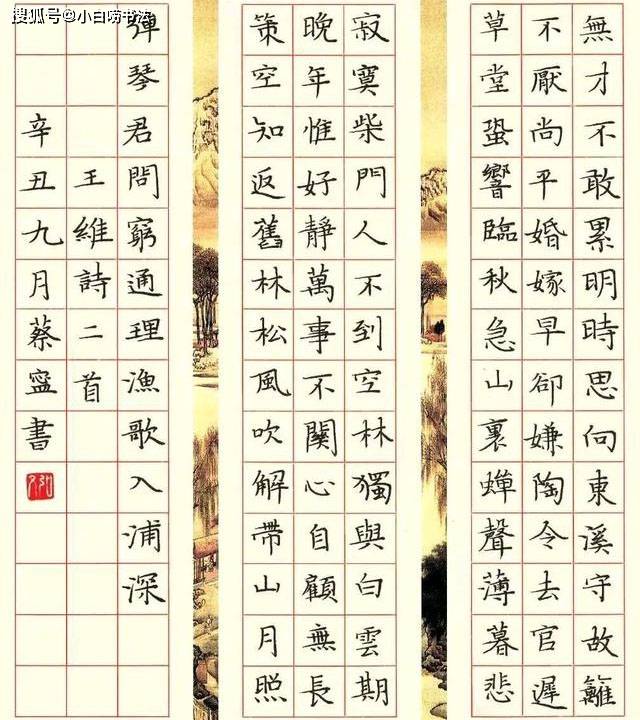 搜狐号@小白唠书法
無才不敢累明時思向東溪守故籬
不厭尚平婚嫁早卻嫌陶令去官遲
草堂蛩響臨秋急山裏蟬聲薄暮悲
寂寞柴門人不到空林獨與白雲期
晚年惟好靜萬事不關心自顧無長
策空知返舊林松風吹解帶山月照
彈琴君問窮通理漁歌入浦深
王維詩二首
辛丑九月蔡寍書